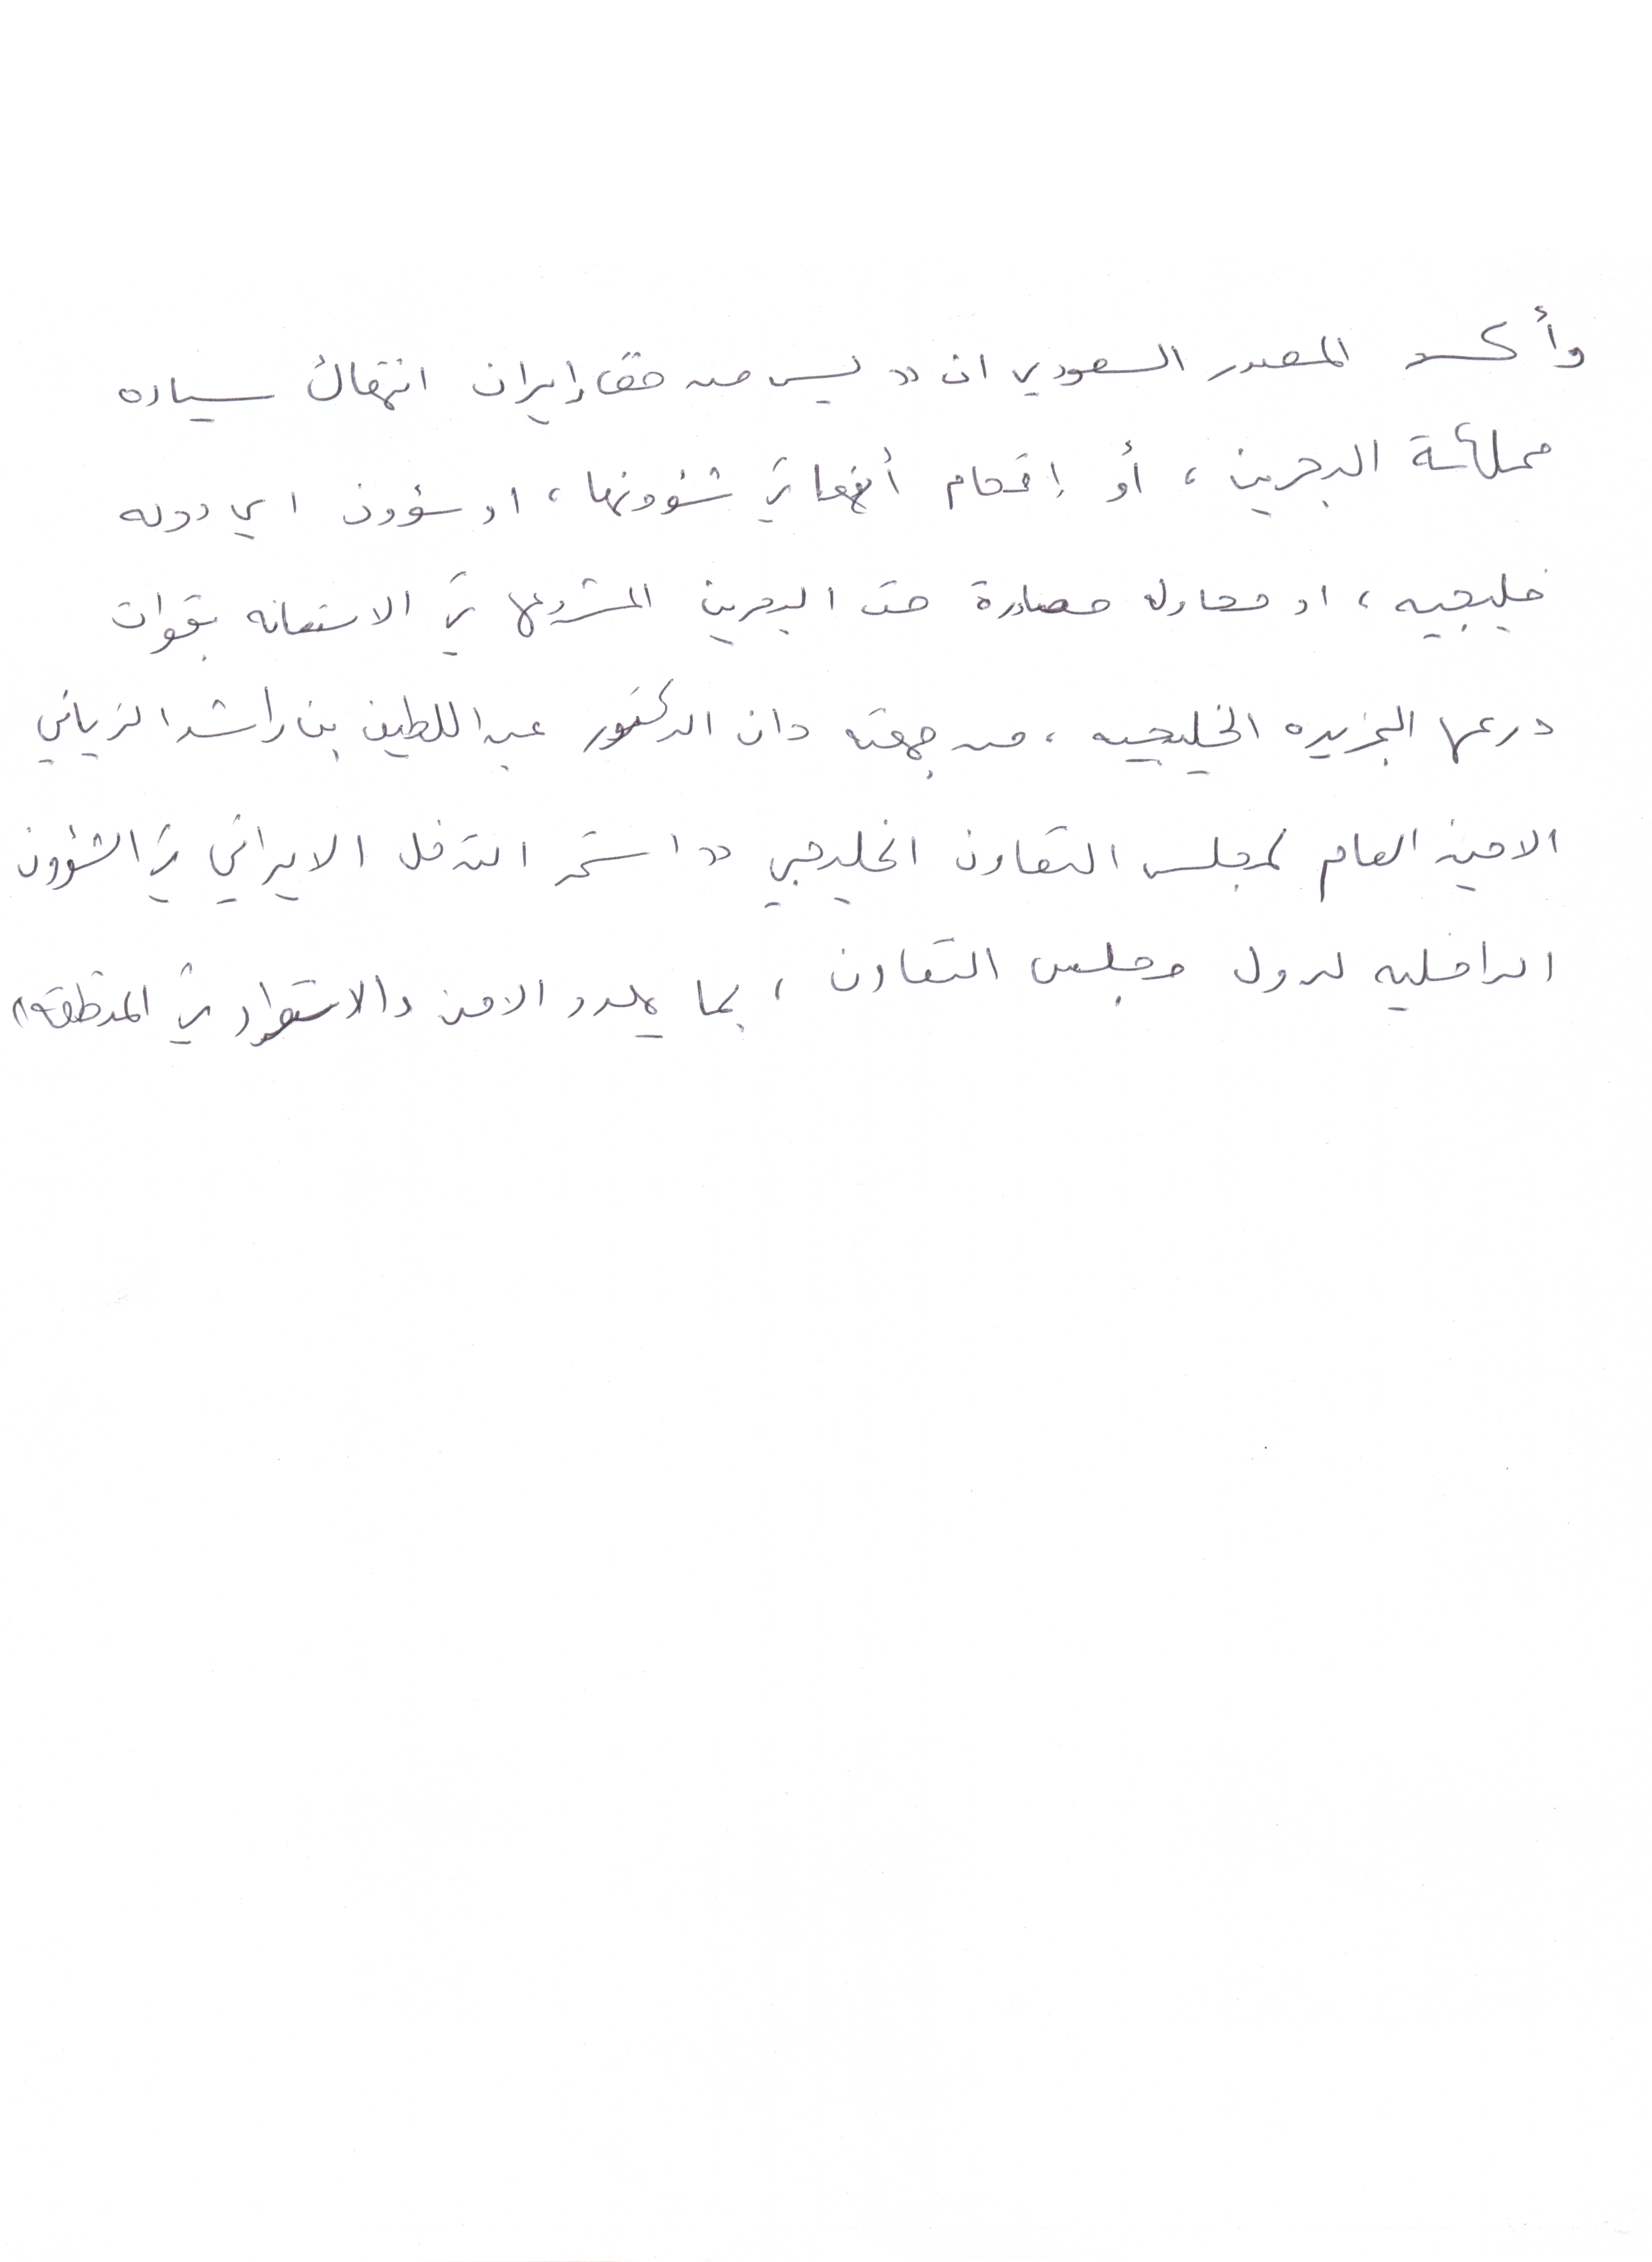 وأكد المصدر السعودي ان «ليس من حق إيران انتهاك سياده
مملكة البحرين، أو إقحام أنفها في شؤونها، او شؤون اي دوله
خليجيه، او محاوله مصادرة حق البحرين المشروع في الاستعانه بقوات
درع الجزيره الخليجيه، من جهته دان الدكتور عبد اللطيف بن راشد الزياني
الامين العام لمجلس التعاون الخليجي «استمر التدخل الايراني في الشؤون
الداخليه لدول مجلس التعاون، بما يهدد الامن والاستقرار في المنطقه»